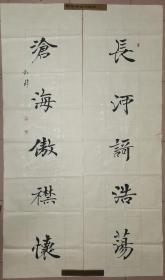 長河詩浩蕩
滄海傲襟懷